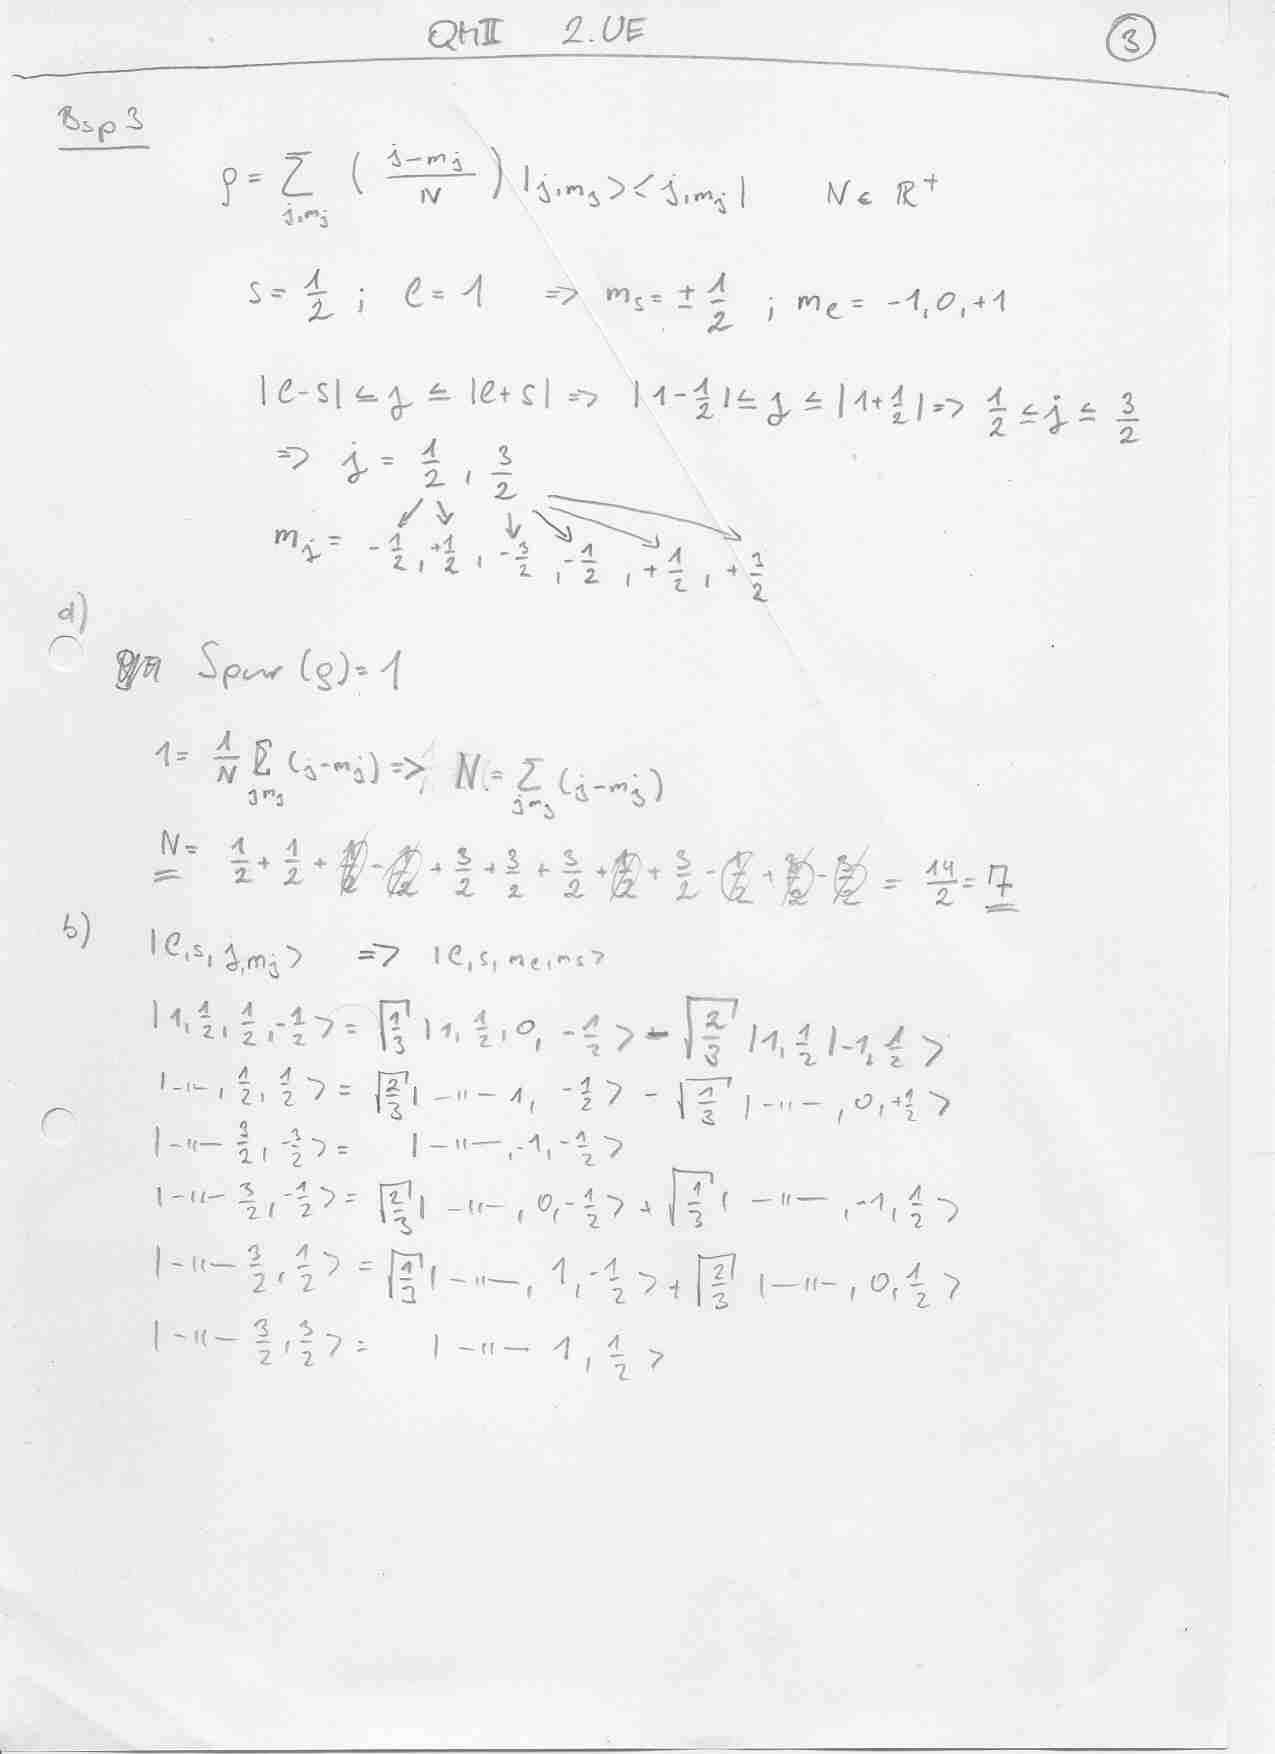 QM II 2. UE ③
Bsp 3
ρ = Σ_{j,m_j} ( (j-m_j)/N ) |j,m_j><j,m_j| N ∈ ℝ⁺
s = 1/2 ; l = 1 => m_s = ± 1/2 ; m_l = -1, 0, +1
|l-s| ≤ j ≤ |l+s| => |1-1/2| ≤ j ≤ |1+1/2| => 1/2 ≤ j ≤ 3/2
=> j = 1/2 , 3/2
m_j = -1/2 , +1/2 , -3/2 , -1/2 , +1/2 , +3/2
a)
Spur (ρ) = 1
1 = 1/N Σ_{j m_j} (j-m_j) => N = Σ_{j m_j} (j-m_j)
N = 1/2 + 1/2 + 1/2 - 1/2 + 3/2 + 3/2 + 3/2 + 1/2 + 3/2 - 1/2 + 3/2 - 3/2 = 14/2 = 7
b) |l,s,j,m_j> => |l,s,m_l,m_s>
|1, 1/2, 1/2, -1/2> = √(1/3) |1, 1/2, 0, -1/2> - √(2/3) |1, 1/2 |-1, 1/2>
|-"-, 1/2, 1/2> = √(2/3) |-"- 1, -1/2> - √(1/3) |-"-, 0, +1/2>
|-"- 3/2, -3/2> = |-"-, -1, -1/2>
|-"- 3/2, -1/2> = √(2/3) |-"-, 0, -1/2> + √(1/3) |-"-, -1, 1/2>
|-"- 3/2, 1/2> = √(1/3) |-"-, 1, -1/2> + √(2/3) |-"-, 0, 1/2>
|-"- 3/2, 3/2> = |-"- 1, 1/2>